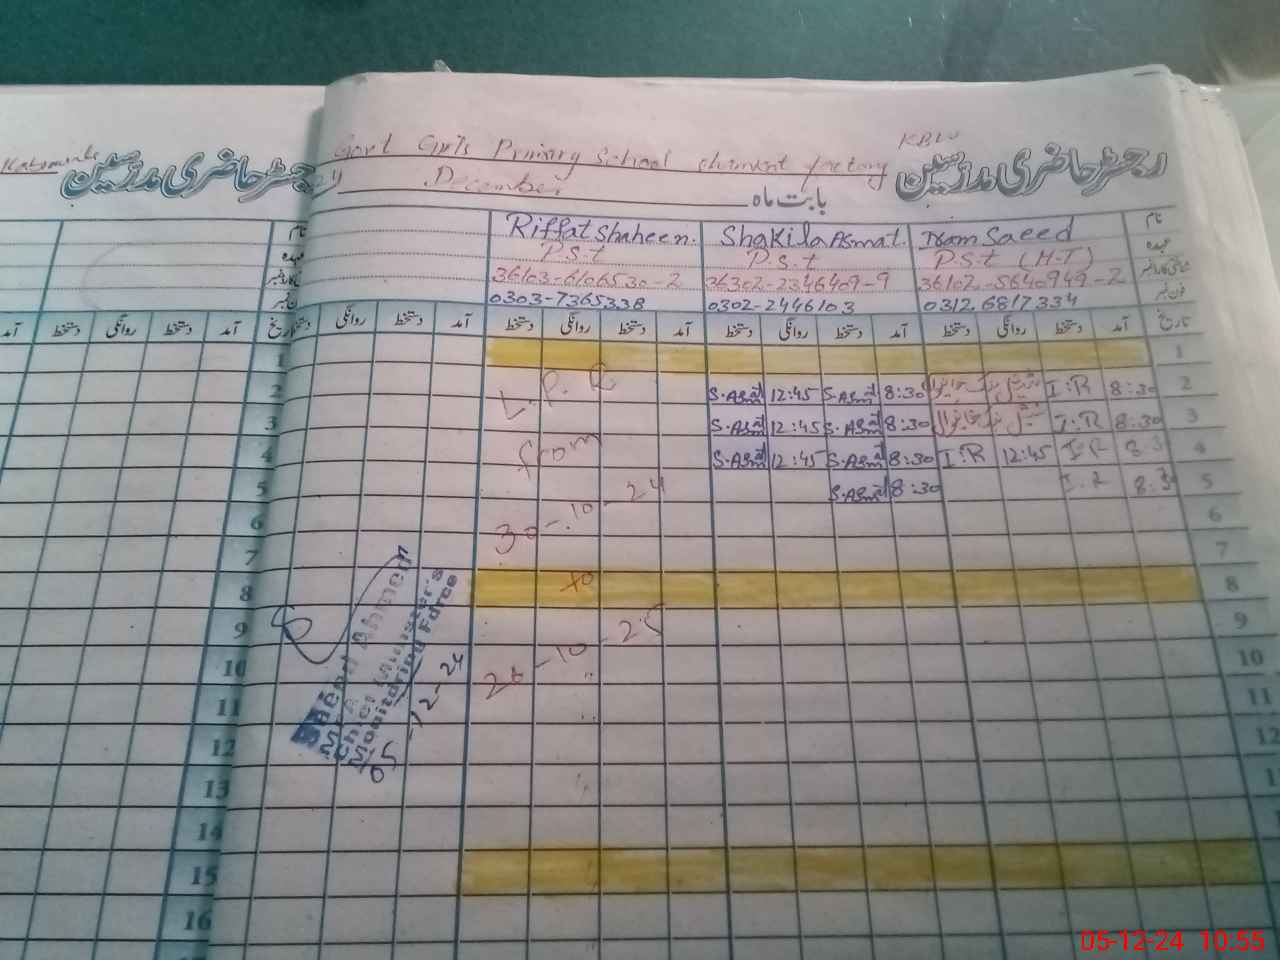 Govt Girls Primary School element factory KBW
رجسٹر حاضری مدرسین
رجسٹر حاضری مدرسین
بابت ماہ December
نام Iram Saeed Shakila Asmat. Riffat Shaheen.
عہدہ P.S.t (H.T) P.S.t P.S.t
36102-5640949-2 36302-2346409-9 36103-6106530-2
فون نمبر 0312.6817334 0302-2446103 0303-7365338
تاریخ آمد دستخط روانگی دستخط آمد دستخط روانگی دستخط آمد دستخط روانگی دستخط آمد دستخط روانگی دستخط
1
2 8:30 I.R 8:30 S.Asmat 12:45 S.Asmat
3 8:30 I.R 8:30 S.Asmat 12:45 S.Asmat
4 8:3 I.R 12:45 I.R 8:30 S.Asmat 12:45 S.Asmat
5 8:3 I.R 8:30 S.Asmat
6
7
8
9
10
11
12
15
L.P.R
from
30-10-24
to
-10-25
Saeed Ahmed
MEA
Chief Minister's
Monitoring Force
05-12-24
آمد دستخط روانگی دستخط آمد تاریخ
1
2
3
4
5
6
7
8
9
10
11
12
13
14
15
16
05-12-24 10:55